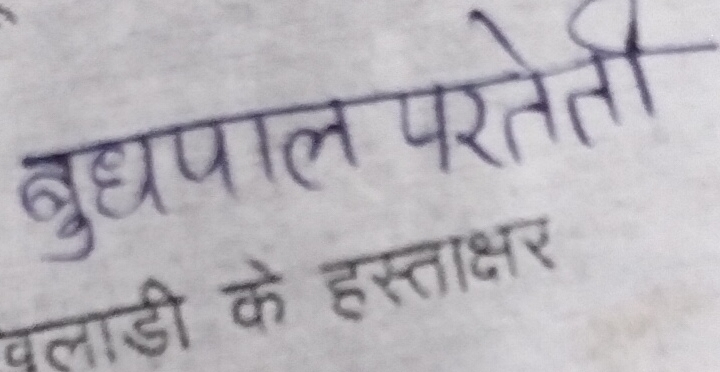 बुधपाल परतेती
खिलाडी के हस्ताक्षर